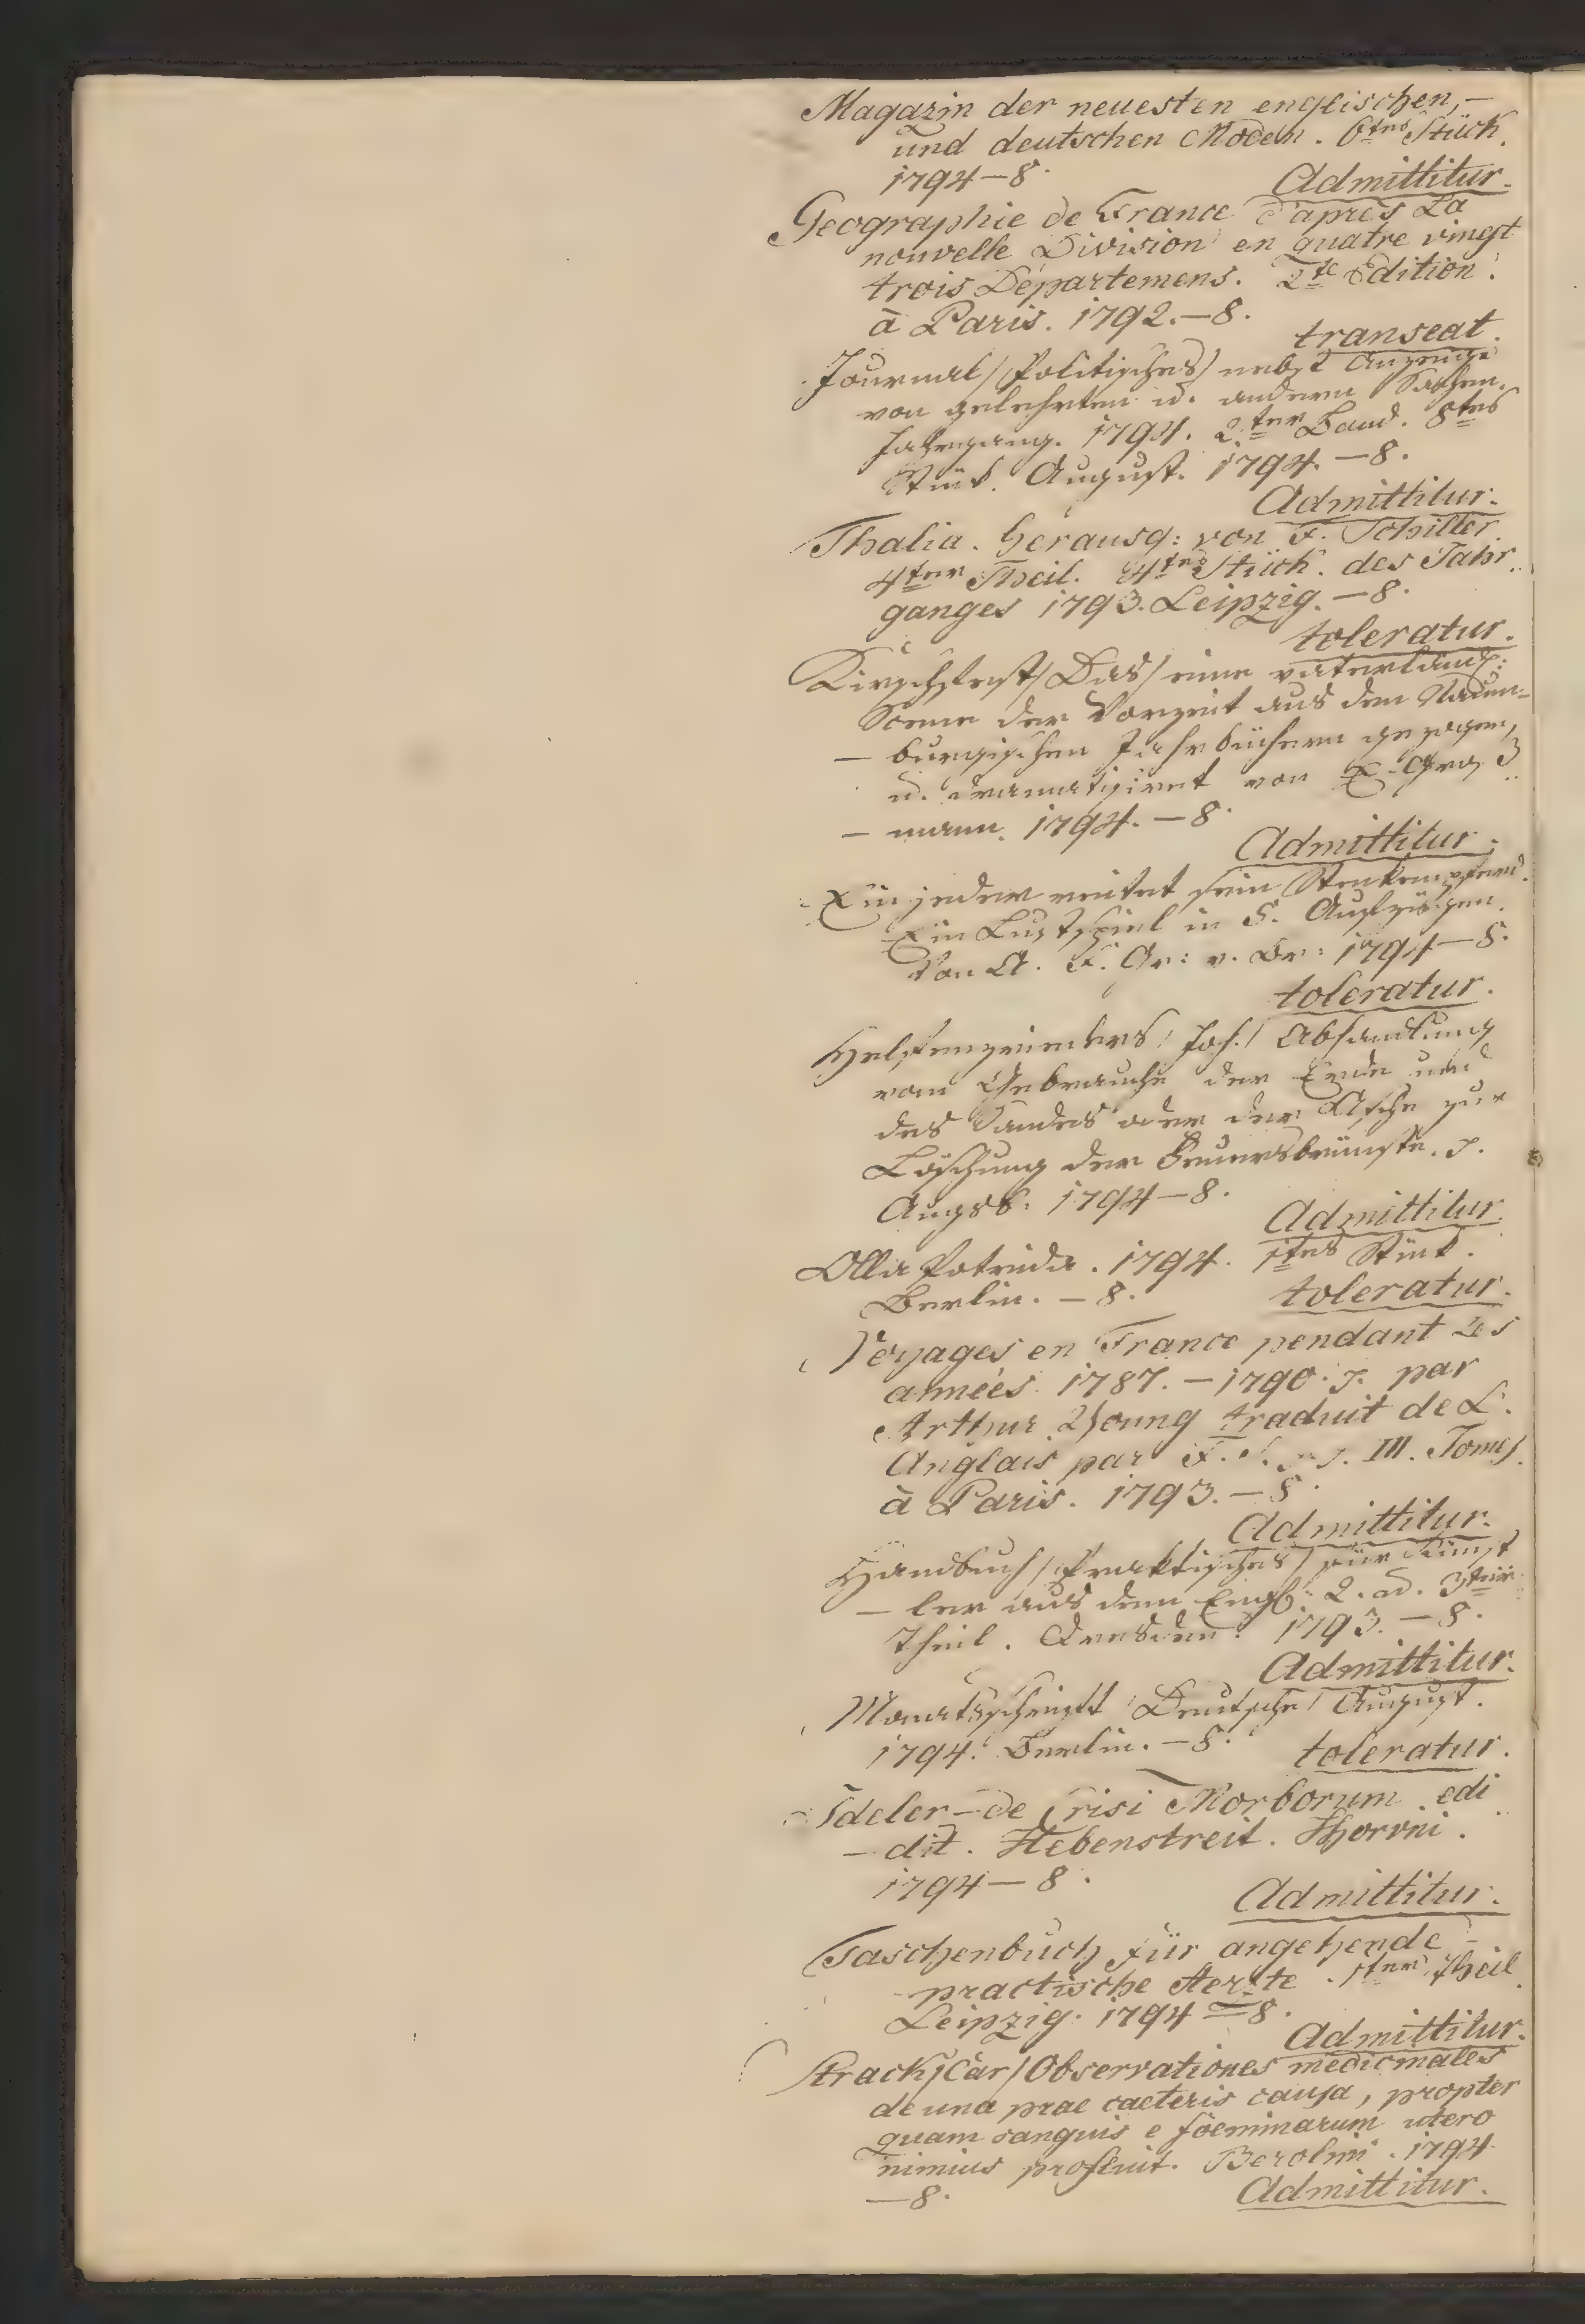 Magazin der neuesten englischen, —
und deutschen Moden. 6tes Stück.
1794 — 8.
Admittitur.
Geographie de France d'après La
nouvelle Division en quatre vingt
trois Départemens. 2te Edition.
à Paris. 1792. — 8.
transeat.
Journal / Politisches / nebst Anzeige
von gelehrten u. andern Sachen.
Jahrgang. 1794. 2ter Band. 8tes
Stück. August. 1794. — 8.
Admittitur.
Thalia. herausg: von F. Schiller.
4ter Theil. 4tes Stück. des Jahr
ganges 1793. Leipzig. — 8.
toleratur.
Kirschfest / Das / eine vaterländ:
Scene der Vorzeit aus den Naum=
— burgischen Jahrbüchern gezogen,
u. dramatisiret von
— mann. 1794. — 8.
Admittitur.
Ein jeder reitet sein Steckenpferd.
Ein Lustspiel in 5. Aufzügen.
Von A. F. Gr: v. Br: 1794 — 8.
toleratur.
Helfenzrieders / Joh. / Abhandlung
vom Gebrauche der Erde und
des Sandes oder der Asche zur
Löschung der Feuersbrünste.
Augsb: 1794 — 8.
Admittitur.
Olla Potrida. 1794. 1tes Stück.
Berlin. — 8.
toleratur.
Voyages en France pendant Les
années 1787. — 1790. par
Arthur Young traduit de L'
Anglais par F. S. III. Tomes.
à Paris. 1793. — 8.
Admittitur.
Handbuch / Praktisches / für Künst
— ler aus dem Engl: 2. u. 3ter
Theil. Dresden. 1793. — 8.
Admittitur.
Monatsschrift / Deutsche / August.
1794. Berlin. — 8.
toleratur.
Ideler — de Crisi Morborum edi
— dit. Hebenstreit.
1794 — 8.
Admittitur.
Taschenbuch für angehende
practische Aerzte. 1ter Theil.
Leipzig. 1794 — 8.
Admittitur.
Strack / Car / Observationes medicinales
de una prae caeteris causa, propter
quam sanguis e foeminarum utero
nimius profluit. Berolini. 1794
— 8.
Admittitur.